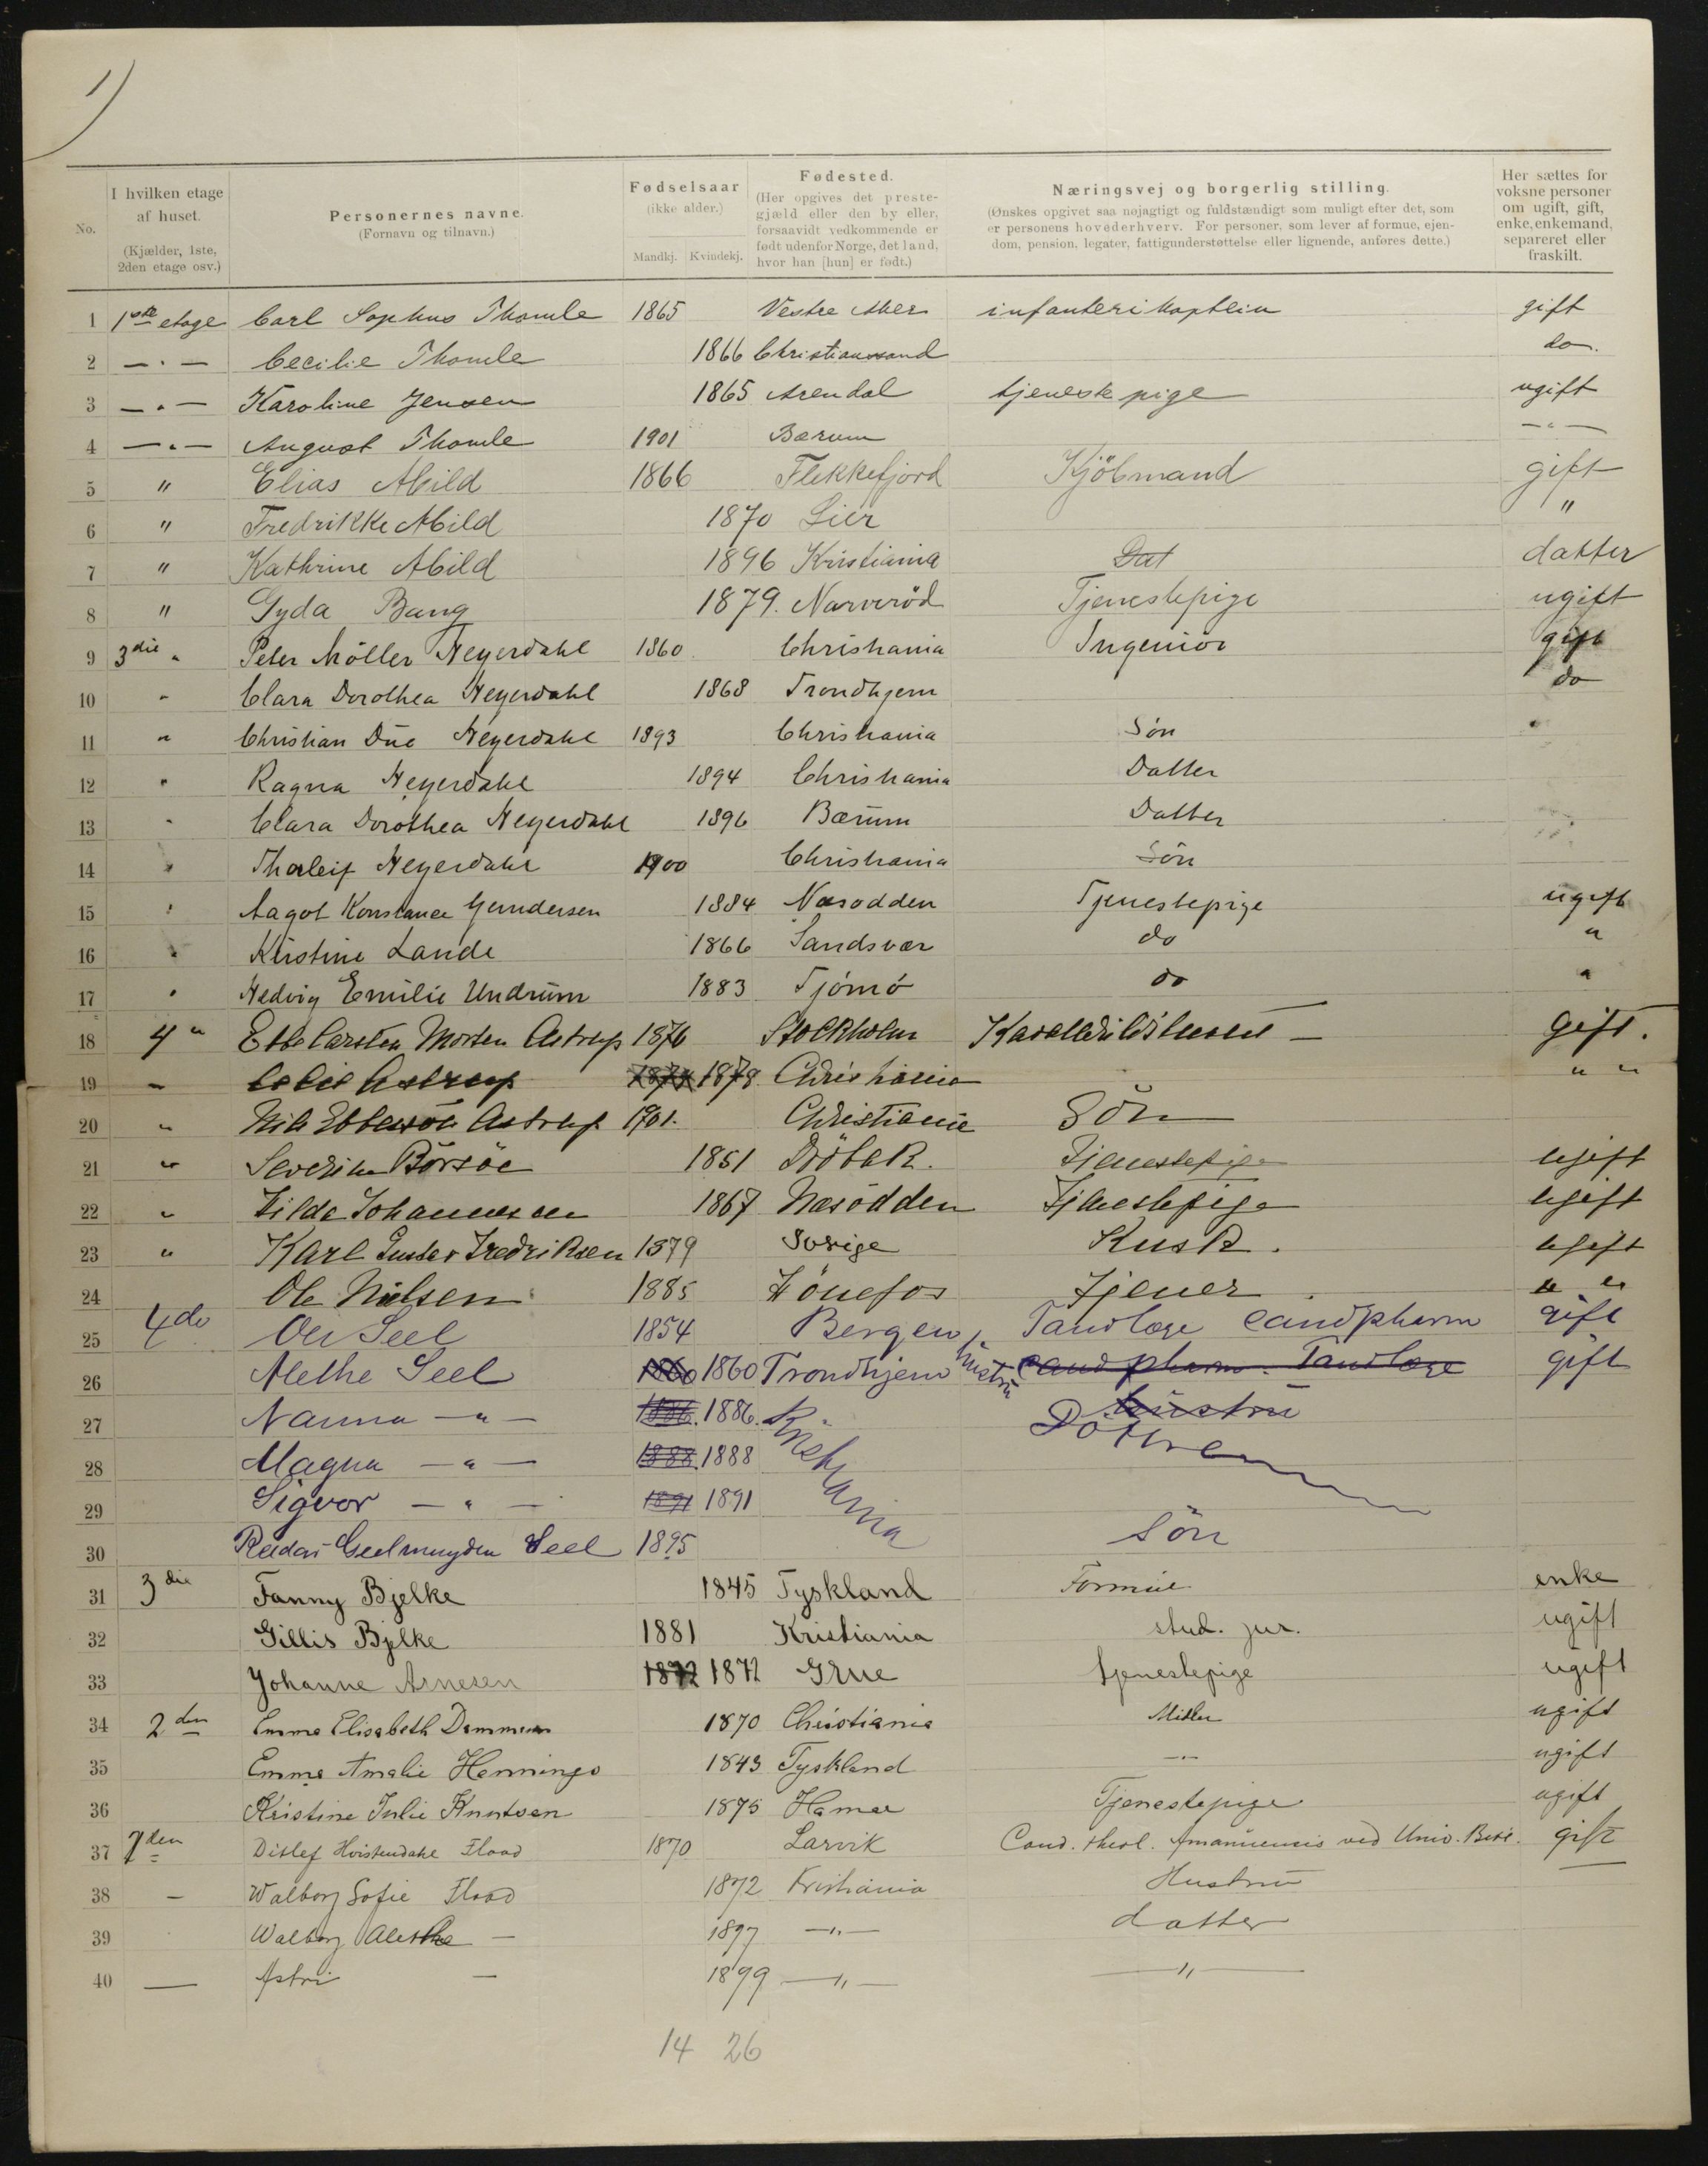 1)
No.
I hvilken etage af huset. (Kjælder, 1ste, 2den etage osv.)
Personernes navne. (Fornavn og tilnavn.)
Fødselsaar (ikke alder.) Mandkj. Kvindekj.
Fødested. (Her opgives det prestegjæld eller den by eller, forsaavidt vedkommende er født udenfor Norge, det land, hvor han [hun] er født.)
Næringsvej og borgerlig stilling. (Ønskes opgivet saa nøjagtigt og fuldstændigt som muligt efter det, som er personens hovederhverv. For personer, som lever af formue, ejendom, pension, legater, fattigunderstøttelse eller lignende, anføres dette.)
Her sættes for voksne personer om ugift, gift, enke, enkemand, separeret eller fraskilt.
1 1ste etage Carl Sophus Thomle 1865 Vestre Aker infanterikaptein gift
2 — " — Cecilie Thomle 1866 Christianssand do.
3 — " — Karoline Jensen 1865 Arendal tjenestepige ugift
4 — " — August Thomle 1901 Bærum — " —
5 " Elias Abild 1866 Flekkefjord Kjöbmand gift
6 " Fredrikke Abild 1870 Lier "
7 " Kathrine Abild 1896 Kristiania Dat datter
8 " Gyda Bang 1879. Narveröd Tjenestepige ugift
9 3die " Peter Möller Heyerdahl 1860 Christiania Ingeniör gift
10 " Clara Dorothea Heyerdahl 1868 Trondhjem do
11 " Christian Due Heyerdahl 1893 Christiania Sön
12 " Ragna Heyerdahl 1894 Christiania Datter
13 " Clara Dorothea Heyerdahl 1896 Bærum Datter
14 " Thorleif Heyerdahl 1900 Christiania Sön
15 " Aagot Konstance Gundersen 1884 Næsodden Tjenestepige ugift
16 " Kirstine Lande 1866 Sandsvær do "
17 " Hedvig Emilie Undrum 1883 Tjömö do "
18 4 " Ebbe Carsten Morten Astrup 1876 Stockholm — gift.
19 " Astrup 1878 Christiania " "
20 " Nils Ebbessön Astrup 1901. Christiania Sön
21 " Severine Börsöe 1851 Dröbak. Tjenestepige ugift
22 " Hilda Johannesen 1867 Næsödden Tjenestepige ugift
23 " Karl Gustav Fredriksen 1879 Sverige Kusk. ugift
24 Ole Nilsen 1885 Hönefos Tjener " "
25 4do Ole Seel 1854 Bergen Tandlæge cand pharm gift
26 Alethe Seel 1860 1860 Trondhjem hustru cand pharm. Tandlæge gift
27 Nanna — " — 1886. 1886. Kristiania hustru Döttre
28 Magna — " — 1888. 1888
29 Sigvor — " — 1891 1891
30 Reidar Geelmuyden Seel 1895 Sön
31 3die Fanny Bjelke 1845 Tyskland Formue enke
32 Gillis Bjelke 1881 Kristiania stud. jur. ugift
33 Johanne Arnesen 1872 1872 Grue tjenestepige ugift
34 2den Emma Elisabeth Dammann 1870 Christiania Midler ugift
35 Emma Amalie Hennings 1843 Tyskland — " — ugift
36 Kristine Julie Knutsen 1875 Hamar Tjenestepige ugift
37 2den Ditlef Hvistendahl Flood 1870 Larvik Cand. theol. Amanuensis ved Univ. Bibl. gift
38 — Walborg Sofie Flood 1872 Kristiania Hustru —
39 Walborg Alethe — 1897 — " — datter
40 — Astri — 1899 — " — — " —
14 26